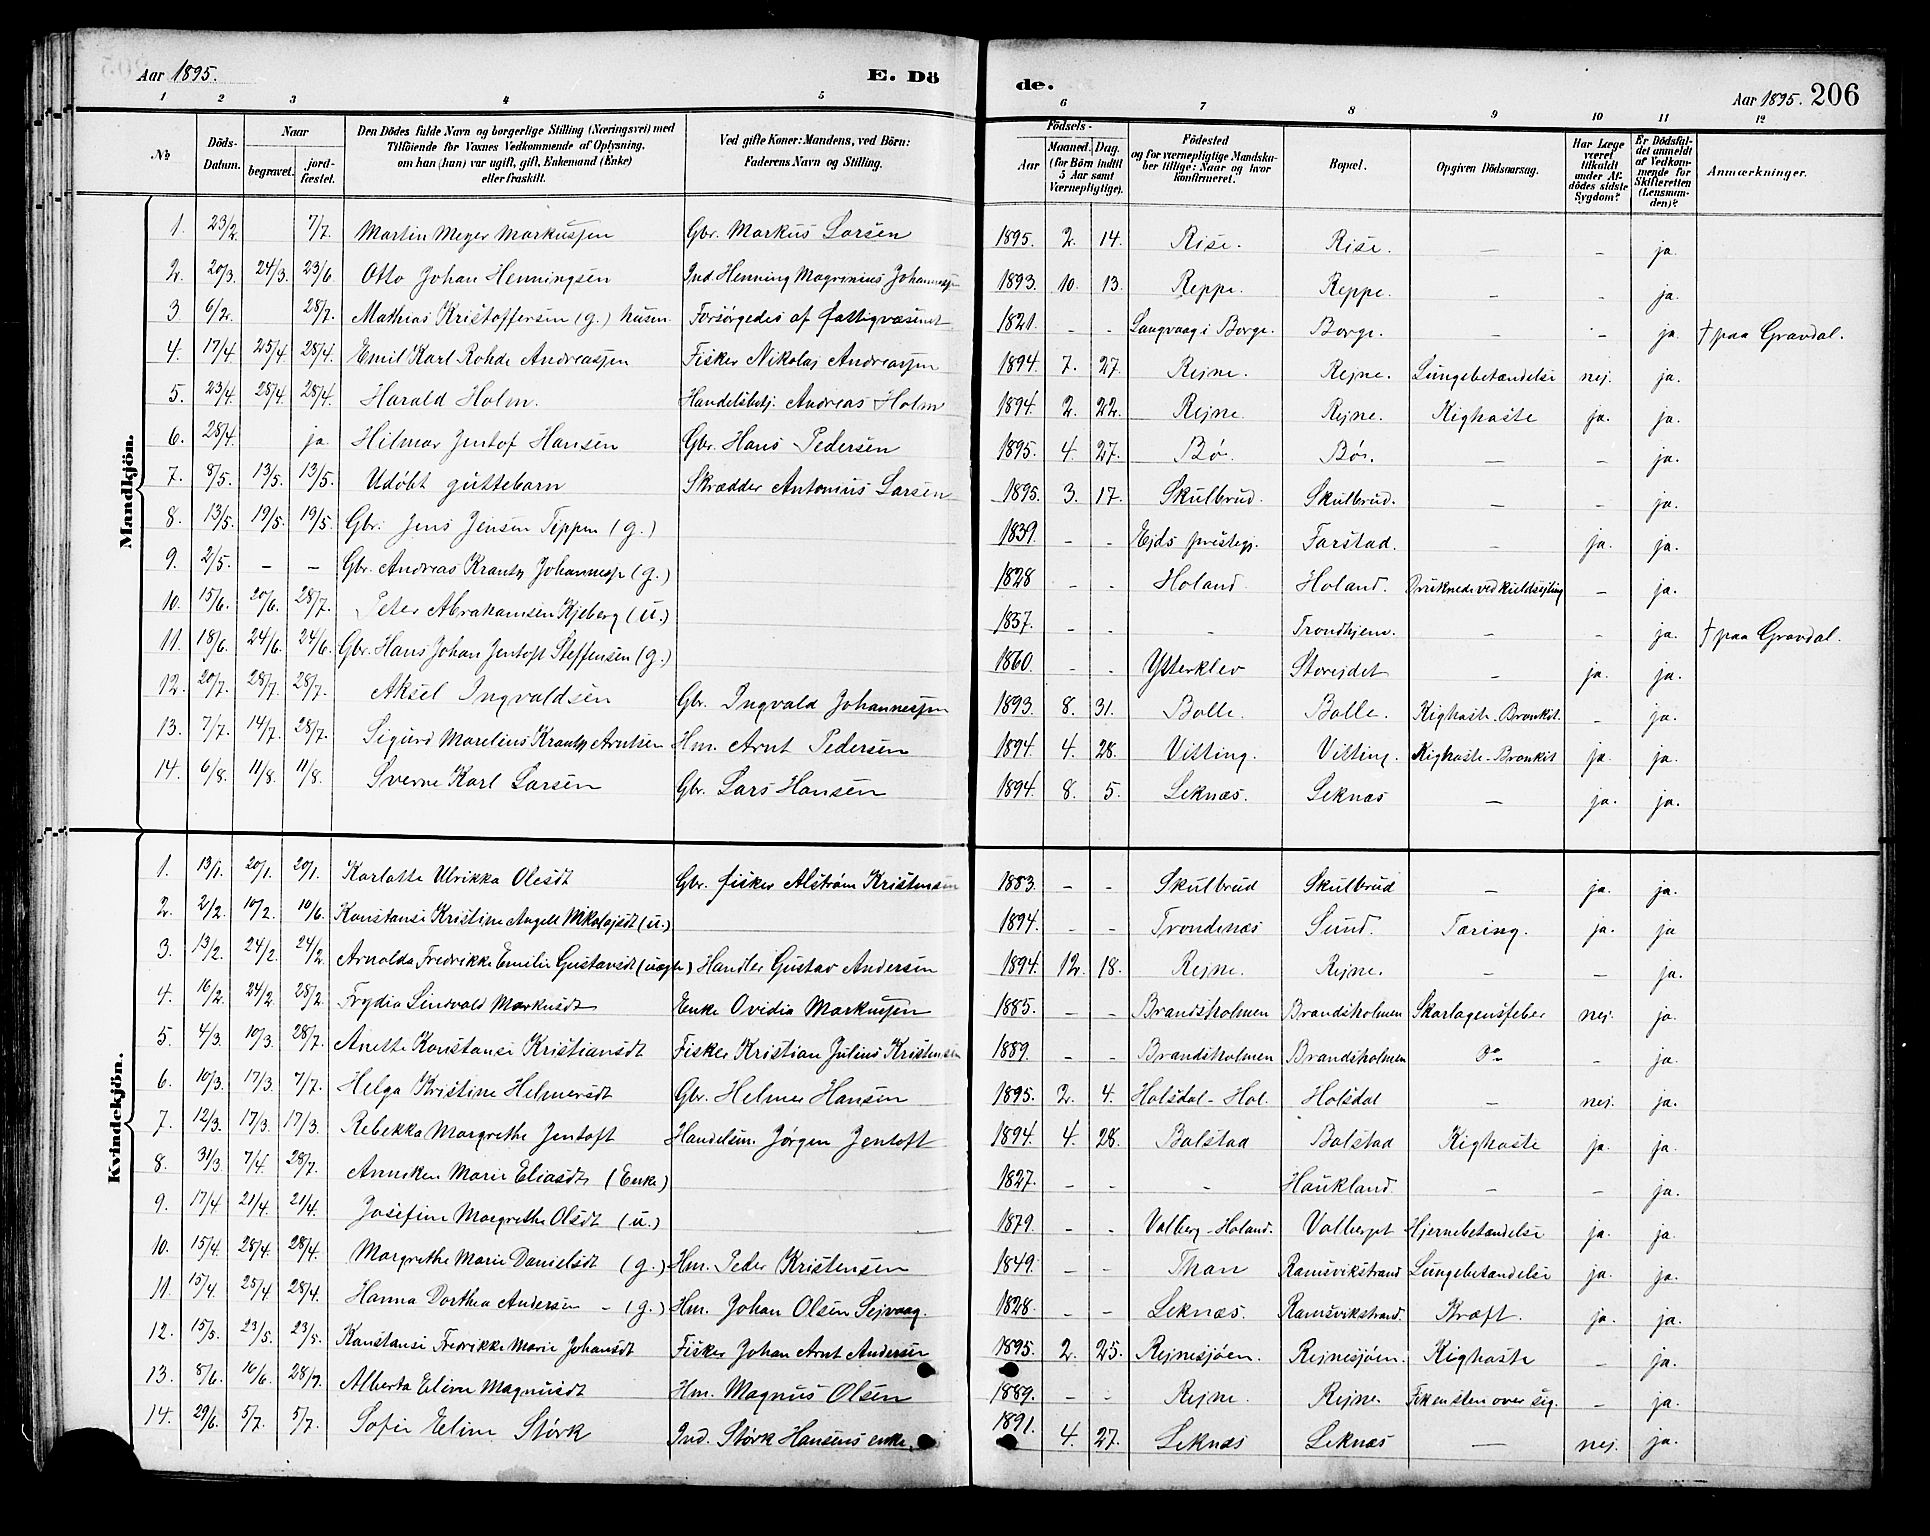 Aar 1895. E. Dö de. Aar 1895. 206
1 2 3 4 5 6 7 8 9 10 11 12
№ Döds-Datum. Naar begravet. jord-fæstet. Den Dödes fulde Navn og borgerlige Stilling (Næringsvei) med Tilföiende for Voxnes Vedkommende af Oplysning, om han (hun) var ugift, gift, Enkemand (Enke) eller fraskilt. Ved gifte Koner: Mandens, ved Börn: Faderens Navn og Stilling. Födsels- Aar Maaned. Dag. (for Börn indtil 5 Aar samt Værnepligtige). Födested og for værnepligtige Mandskaber tillige: Naar og hvor konfirmeret. Bopæl. Opgiven Dödsaarsag. Har Læge været tilkaldt under Afdödes sidste Sygdom? Er Dödsfaldet anmeldt af Vedkommende for Skifteretten (Lensmanden)? Anmærkninger.
Mandkjön.
1. 23/2. 7/7. Martin Meyer Markussen Gbr. Markus Larsen 1895. 2. 14. Rise. Rise. — – ja.
2. 20/3. 24/3. 23/6 Otto Johan Henningsen Ind. Henning Magrenius Johannessen 1893. 10. 13. Reppe. Reppe. — – ja.
3 6/2. 28/7. Mathias Kristoffersen (g.) husm. Forsörgedes af fattigvæsenet 1821. – – Langvaag i Borge. Borge. – – ja. † paa Gravdal.
4. 17/4 25/4. 28/4. Emil Karl Rohde Andreassen Fisker Nikolaj Andreassen 1894. 7. 27. Rejne. Rejne. Lungebetændelse nej. ja.
5. 23/4. 28/4. 28/4. Harald Holm. Handelsbetj. Andreas Holm 1894. 2. 22. Rejne. Rejne. Kighoste ja. ja.
6. 28/4. ja. Hilmar Jentof Hansen Gbr. Hans Pedersen 1895. 4. 27. Bö. Bö. — – ja.
7. 8/5. 13/5. 13/5. Udöbt guttebarn Skrædder Antonius Larsen 1895. 3. 17. Skulbrud. Skulbrud. — – ja.
8. 13/5. 19/5. 19/5. Gbr. Jens Jensen Teppen (g.) 1839. – – Ejds prestegj. Farstad. – ja. ja.
9. 2/5. – – Gbr. Andreas Krantz Johannesen (g.) 1828 – – Holand. Holand. Druknede ved kuldsejling – ja.
10. 15/6. 20/6. 28/7. Peter Abrahamsen Kjeberg (u.) 1837. – – – Trondhjem. – – ja. † paa Gravdal.
11. 18/6. 24/6. 24/6. Gbr. Hans Johan Jentoft Steffensen (g.) 1860. – – Ytterklev Storejdet – ja. ja.
12. 20/7. 28/7. 28/7. Aksel Ingvaldsen Gbr. Ingvald Johannessen 1893. 8. 31. Bolle. Bolle. Kighoste. Bronkit. – ja.
13. 7/7. 14/7. 28/7. Sigurd Marelius Krantz Arntsen Hm. Arnt Pedersen 1894. 4. 28. Vitting. Vitting. Kighoste. Bronkit ja. ja.
14. 6/8. 11/8. 11/8. Sverre Karl Larsen Gbr. Lars Hansen 1894. 8. 5. Leknæs. Leknæs – ja. ja.
Kvindekjön.
1. 13/1. 20/1. 20/1. Karlotte Ulrikka Olesdt Gbr. fisker Alström Kristensen 1883. – – Skulbrud Skulbrud – ja. ja.
2. 2/2. 10/2. 10/6. Konstanse Kristine Angell Nikolajsdt (u.) 1894. – – Trondenæs Sund. Tæring. ja. ja
3. 13/2. 24/2. 24/2. Arnolda Fredrikke Emilie Gustavsdt (uægte) Handler Gustav Andersen 1894. 12. 18. Rejne. Rejne. – – ja.
4. 16/2. 24/2. 28/2. Frydia Lindvald Markusdt Enke Ovidia Markussen 1885. – – Brandsholmen Brandsholmen Skarlagensfeber nej. ja.
5. 4/3. 10/3. 28/7. Anette Konstanse Kristiansdt Fisker Kristian Julius Kristensen 1889. – – Brandsholmen Brandsholmen Do – ja.
6. 10/3. 17/3. 7/7. Helga Kristine Helmersdt Gbr. Helmer Hansen 1895. 2. 4. Holsdal – Hol. Holsdal – nej. ja.
7. 12/3. 17/3. 17/3. Rebekka Margrethe Jentoft Handelsm. Jörgen Jentoft 1894. 4. 28. Balstad Balstad Kighoste ja. ja.
8. 31/3. 7/4. 28/7. Anneken Marie Eliasdt (Enke) 1827. – – – Haukland. – – ja.
9. 17/4 21/4. 21/4. Josefine Margrethe Olsdt (u.) 1879. – – Valberg – Holand. Valberget Hjernebetændelse ja. ja.
10. 15/4. 28/4. 28/4. Margrethe Marie Danielsdt (g.) Hm. Peder Kristensen 1849. – – Than Ramsvikstrand Lungebetændelse ja. ja.
11. 15/4. 25/4. 28/4. Hanna Dorthea Andersen – (g.) Hm. Johan Olsen Sejvaag. 1828. – – Leknæs. Ramsvikstrand. Kræft. ja. ja.
12. 15/5. 23/5. 23/5. Konstanse Fredrikke Marie Johansdt Fisker Johan Arnt Andersen 1895. 2. 25. Rejnesjöen. Rejnesjöen. Kighoste – ja.
13. 8/6. 16/6. 28/7. Alberta Eline Magnusdt Hm. Magnus Olsen 1889. – – Rejne. Rejne. Fik en sten over sig. – ja.
14. 29/6. 5/7. 5/7. Sofie Eline Störk Ind. Störk Hansens enke. 1891. 4. 27. Leknæs Leknæs – nej. ja.